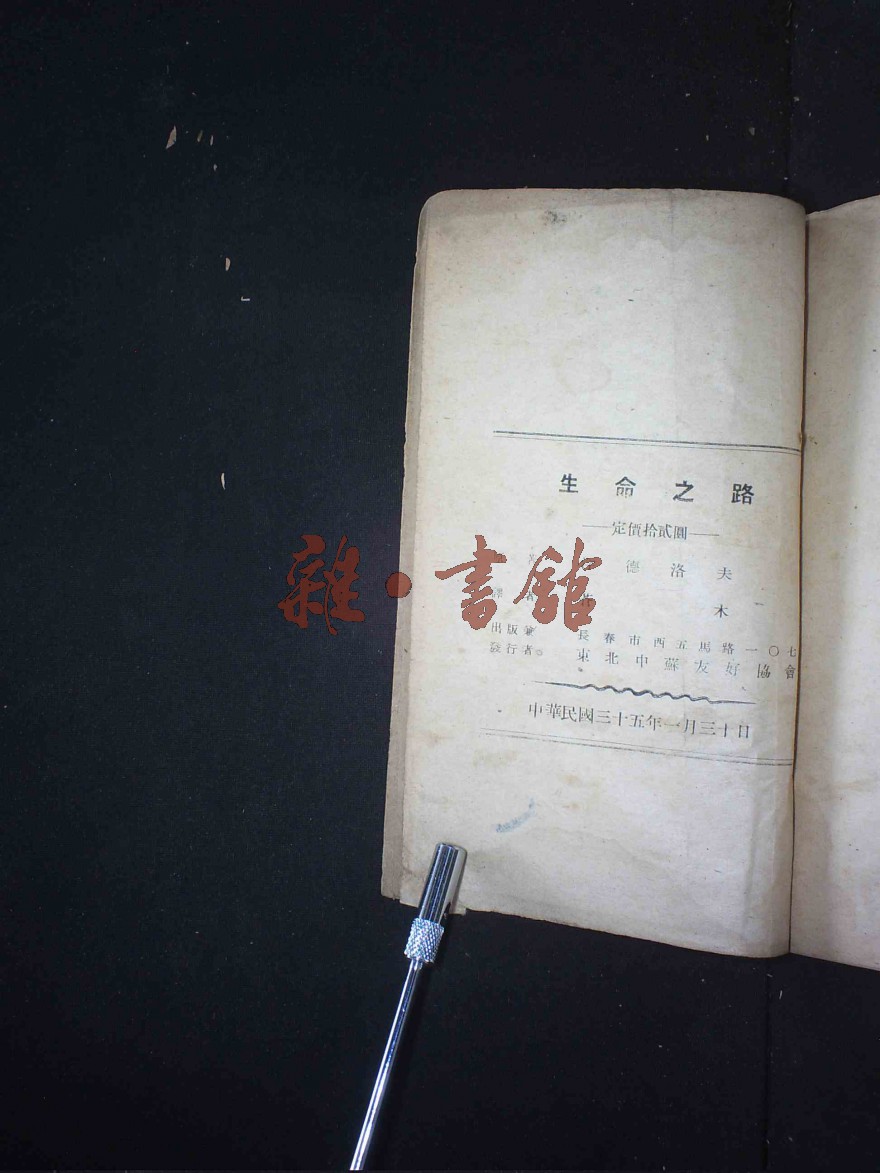 生命之路
——定價拾貳圓——
德洛夫
譯者 木
出版兼 長春市西五馬路一〇七
發行者 東北中蘇友好協會
中華民國三十五年一月三十日
雜·書館